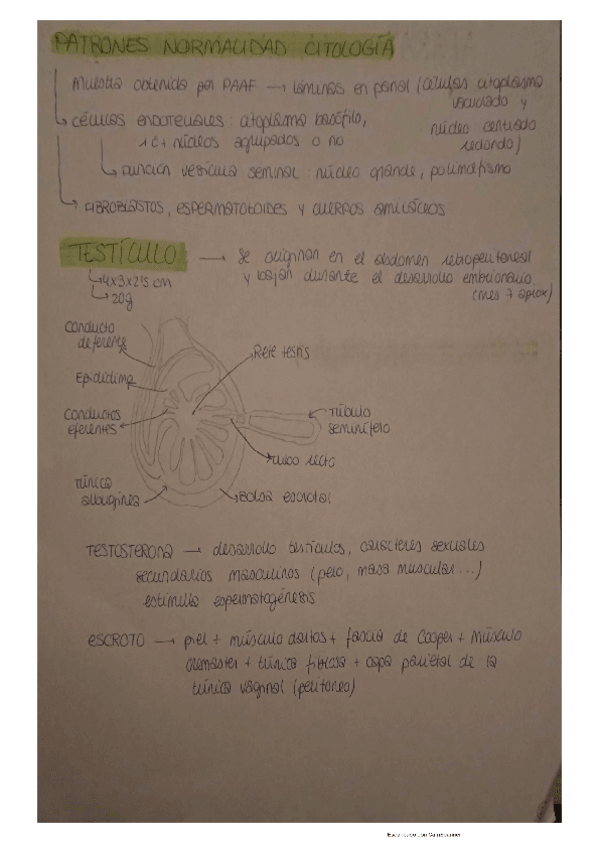 PATRONES NORMALIDAD CITOLOGÍA
Muestra obtenida por PAAF → láminas en panal (células citoplasma
vacuolado y
núcleo centrado
redondo)
células endoteliales: citoplasma basófilo,
1 ó + núcleos agrupados o no
punción vesícula seminal: núcleo grande, polimorfismo
FIBROBLASTOS, ESPERMATOZOIDES Y CUERPOS AMILÁCEOS
TESTÍCULO → se originan en el abdomen retroperitoneal
y bajan durante el desarrollo embrionario
(mes 7 aprox)
4x3x2'5 cm
20g
Conducto
deferente
Rete testis
Epidídimo
Conductos
eferentes
Túbulo
seminífero
Tubo recto
Túnica
albugínea
Bolsa escrotal
TESTOSTERONA → desarrollo testículos, caracteres sexuales
secundarios masculinos (pelo, masa muscular...)
estimula espermatogénesis
ESCROTO → piel + músculo dartos + fascia de Cooper + músculo
cremaster + túnica fibrosa + capa parietal de la
túnica vaginal (peritoneo)
Escaneado con CamScanner